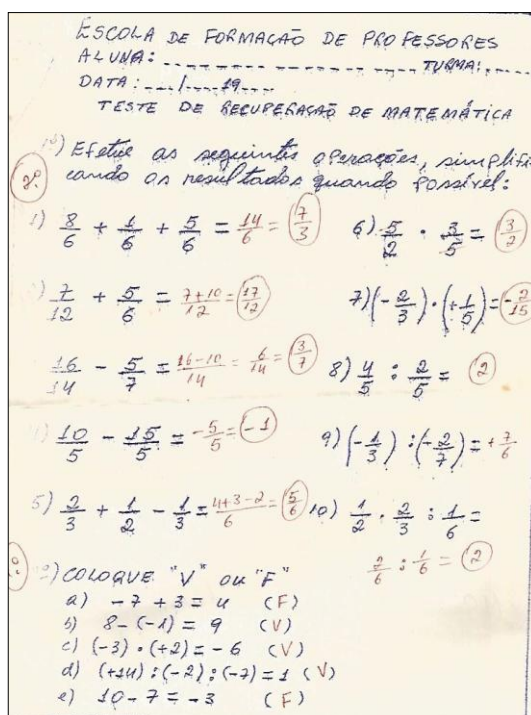 ESCOLA DE FORMAÇÃO DE PROFESSORES
ALUNA: ---------- TURMA: -----
DATA: ---/---- 19----
TESTE DE RECUPERAÇÃO DE MATEMÁTICA
1ª) Efetue as seguintes operações, simplifi-
cando os resultados quando possível:
1) 8/6 + 1/6 + 5/6 = 14/6 = 7/3
6) 5/2 . 3/5 = 3/2
7/12 + 5/6 = 7+10/12 = 17/12
7) (-2/3) . (+1/5) = -2/15
16/14 - 5/7 = 16-10/14 = 6/14 = 3/7
8) 4/5 : 2/5 = 2
10/5 - 15/5 = -5/5 = -1
9) (-1/3) : (-2/7) = +7/6
5) 2/3 + 1/2 - 1/3 = 4+3-2/6 = 5/6
10) 1/2 . 2/3 : 1/6 =
2/6 : 1/6 = 2
2ª) COLOQUE "V" OU "F"
a) -7 + 3 = 4 (F)
b) 8 - (-1) = 9 (V)
c) (-3) . (+2) = -6 (V)
d) (+14) : (-2) : (-7) = 1 (V)
e) 10 - 7 = -3 (F)